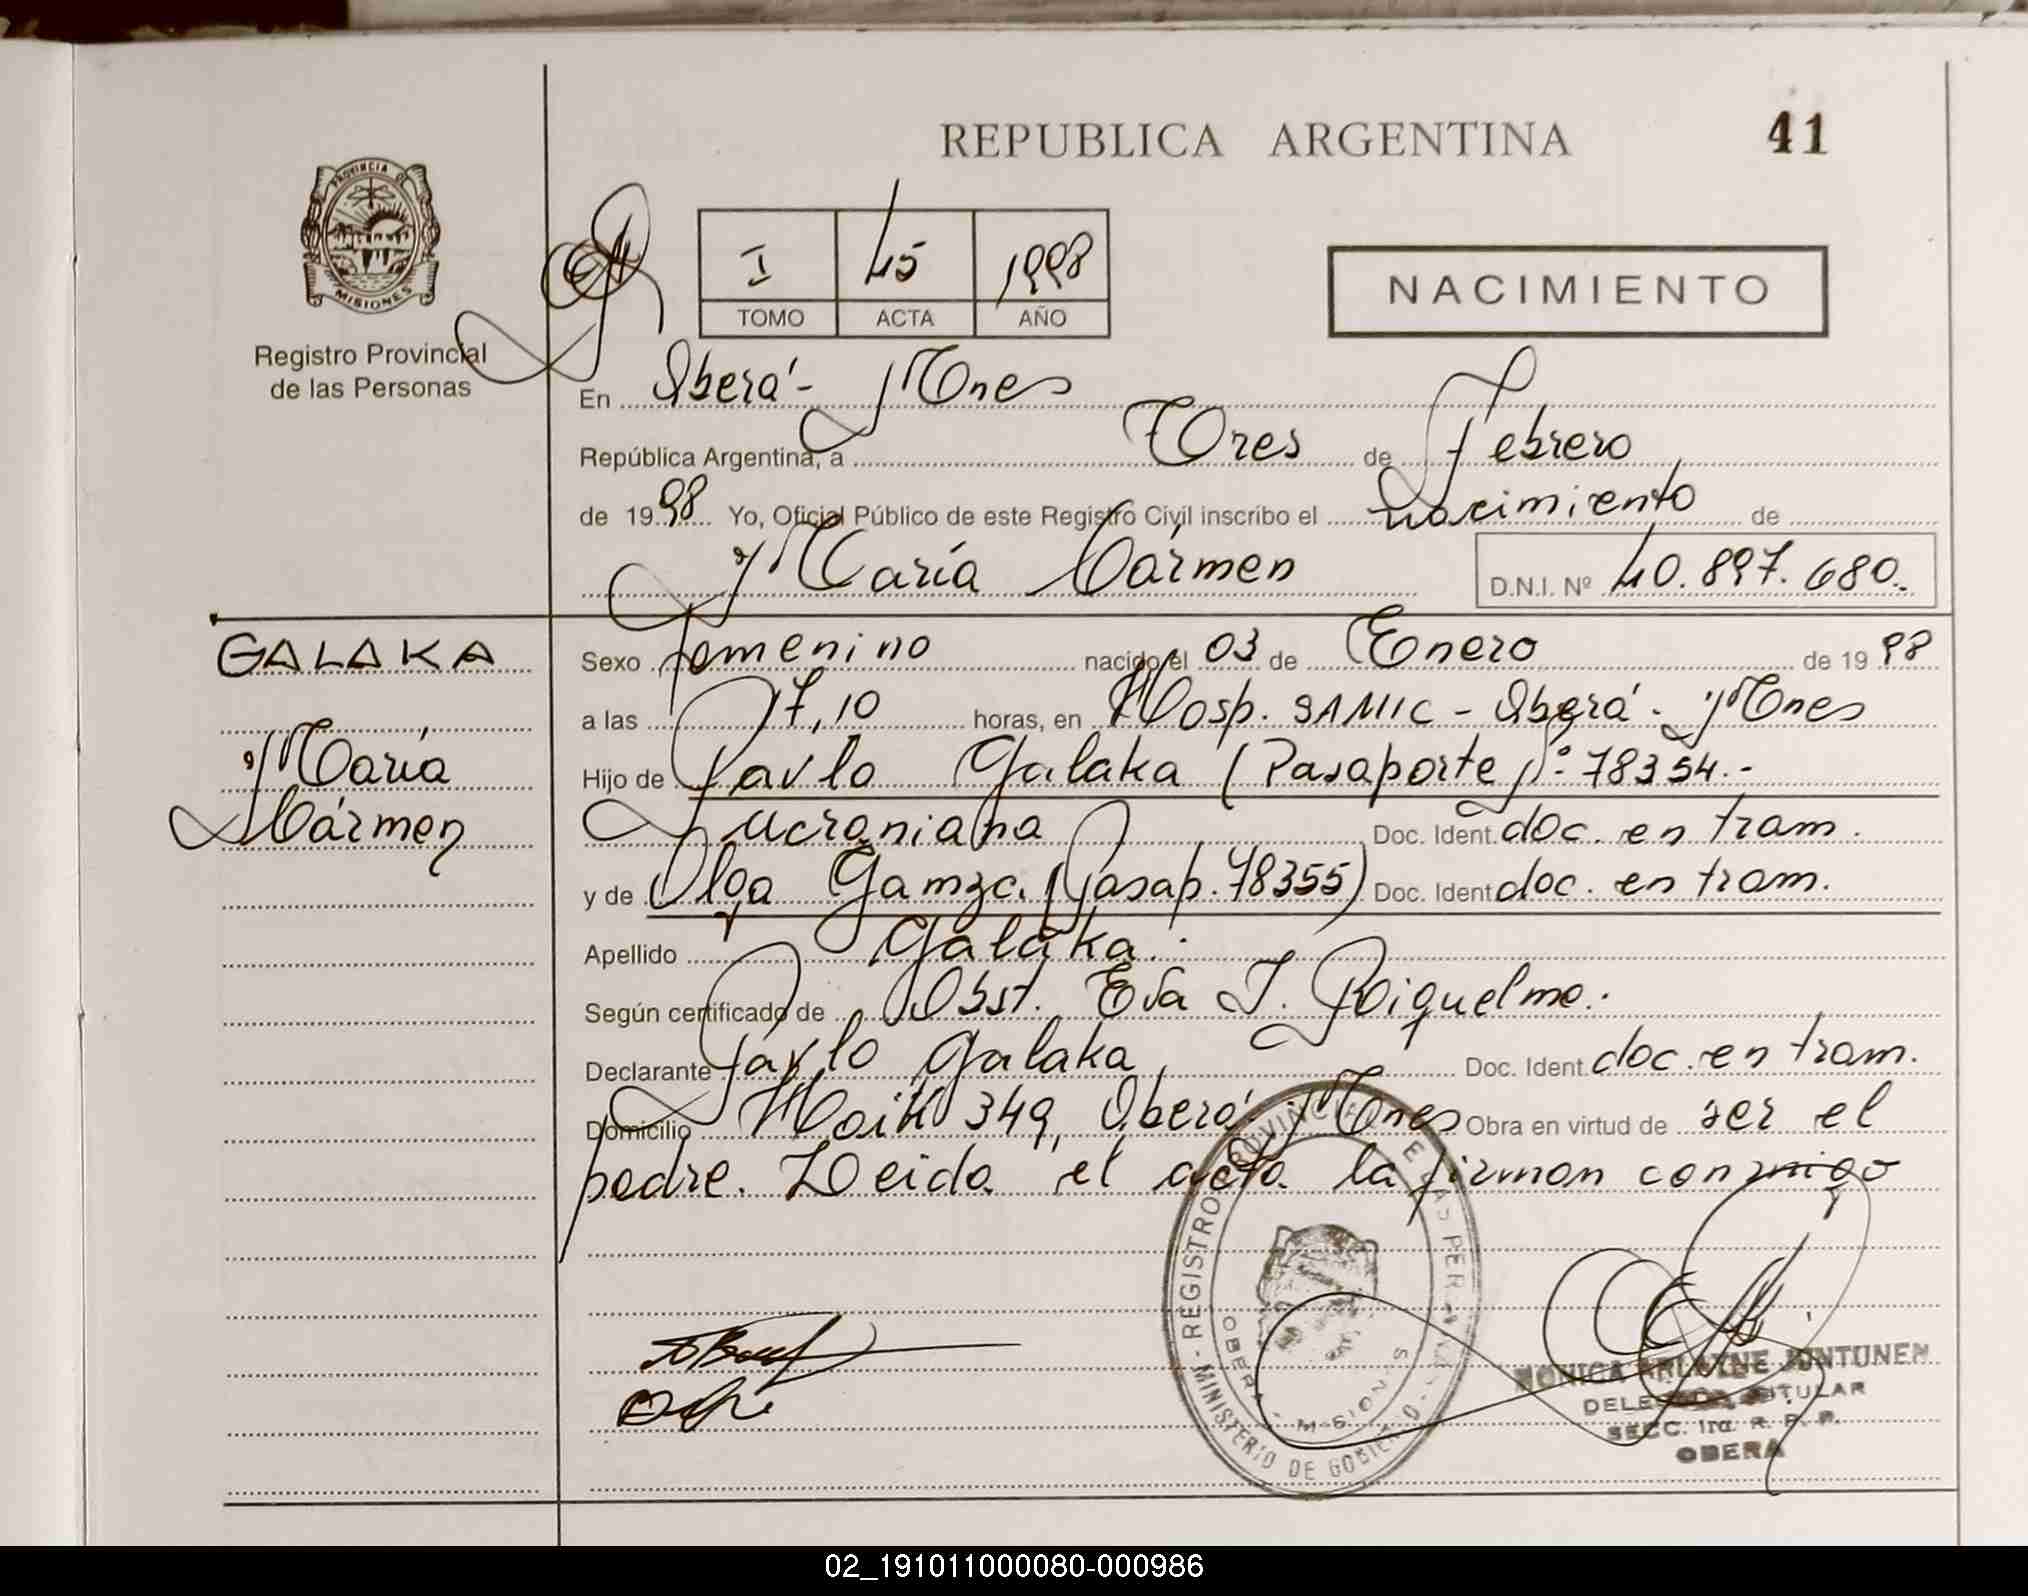 REPUBLICA ARGENTINA
41
PROVINCIA DE
MISIONES
Registro Provincial
de las Personas
I 45 1998
TOMO ACTA AÑO
NACIMIENTO
En Oberá - Mnes
República Argentina, a Tres de Febrero
de 1998 Yo, Oficial Público de este Registro Civil inscribo el nacimiento de
María Cármen D.N.I. Nº 40.897.680.-
GALAKA
María
Cármen
Sexo femenino nacido el 03 de Enero de 1998
a las 17,10 horas, en Hosp. SAMIC - Oberá - Mnes
Hijo de Pavlo Galaka (Pasaporte Nº: 78354.-
ucraniana Doc. Ident. doc. en tram.
y de Olga (Pasap. 78355) Doc. Ident doc. en tram.
Apellido Galaka.
Según certificado de Obst. Eva I. Riquelme.
Declarante Pavlo Galaka Doc. Ident. doc. en tram.
Domicilio 349, Oberá, Mnes Obra en virtud de ser el
padre. Leida el acta la firman conmigo
- REGISTRO PROVINCIAL DE LAS PERSONAS -
MINISTERIO DE GOBIERNO
OBERA - MISIONES
MONICA JUNTUNEN
DELEGADA TITULAR
SECC. 1ra. R. P. P.
OBERA
02_191011000080-000986